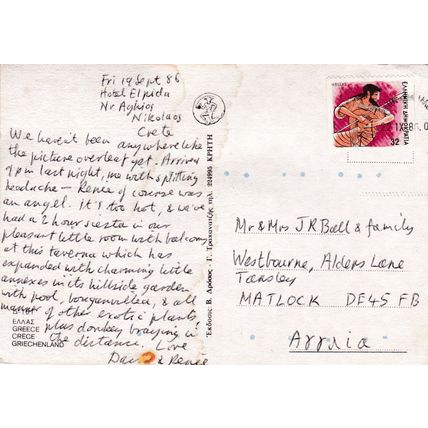 Fri 19 Sept 86
Hotel Elpida
Nr Aghios
Nikolaos
Crete
We haven't been anywhere like
the picture overleaf yet. Arrived
9pm last night, me with splitting
headache – Renee of course was
an angel. It's too hot, & we've
had a 2 hour siesta in our
pleasant little room with balcony
at this taverna which has
expanded with charming little
annexes in its hillside garden
with pool, bouganvillea, & all
manner of other exotic plants
plus donkey braying in
the distance. Love
& Renee
ΕΛΛΑΣ
GREECE
GRECE
GRIECHENLAND
Έκδοσις: Β. Δρόσος - Γ. τηλ. ΚΡΗΤΗ
ΕΛΛΗΝΙΚΗ ΔΗΜΟΚΡΑΤΙΑ
32
Mr & Mrs J R Ball & family
Westbourne, Alders Lane
Tansley
MATLOCK DE45FB
Αγγλία